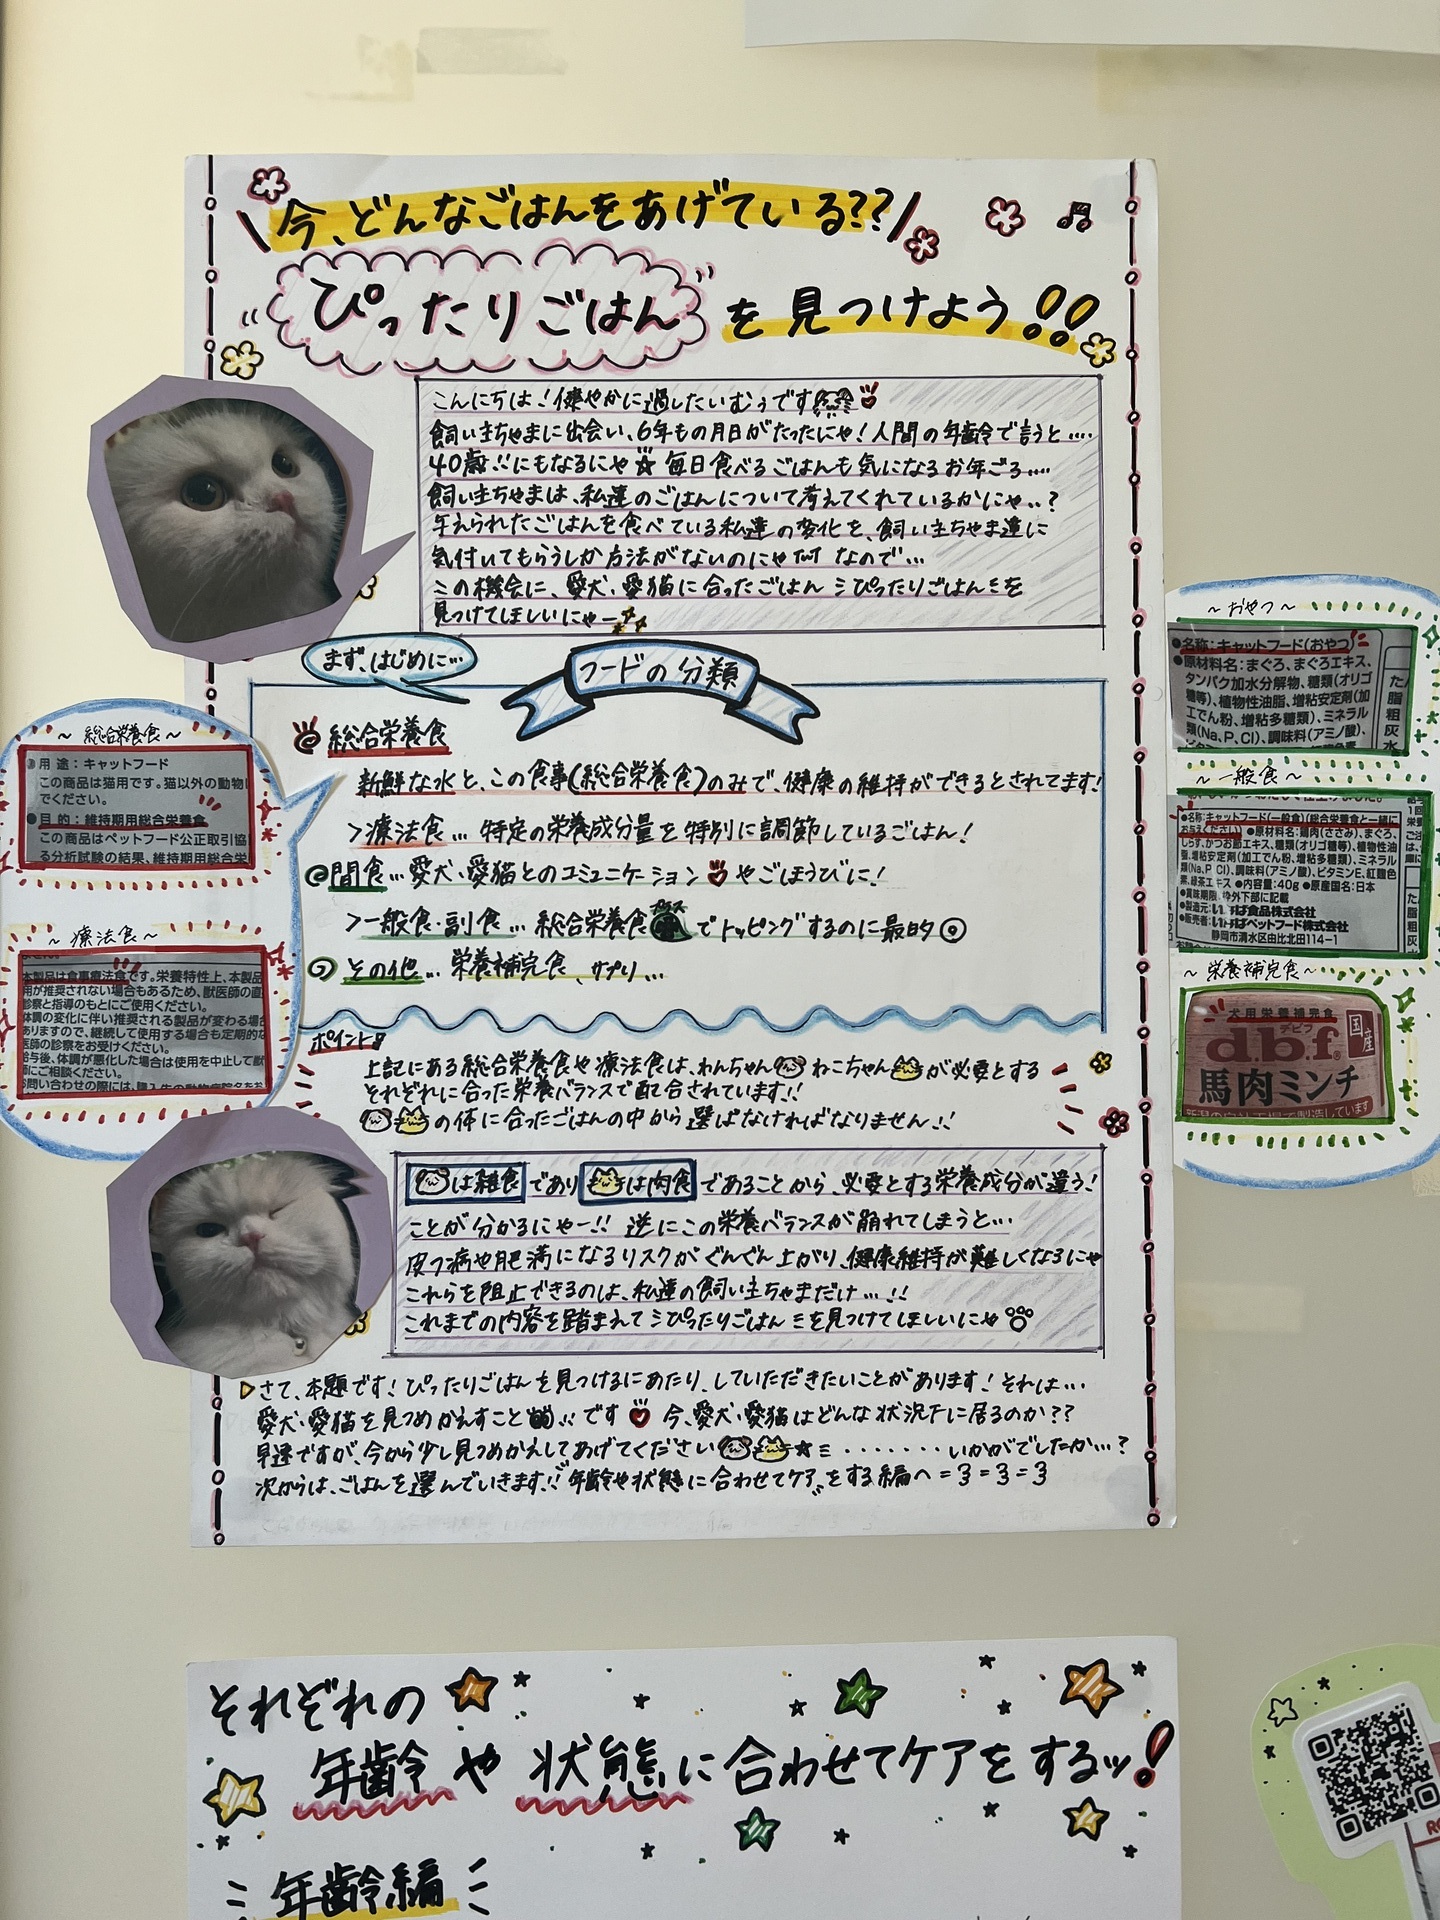 今、どんなごはんをあげている??
ぴったりごはんを見つけよう!!
こんにちは!健やかに過したいむぅです
飼い主ちゃまに出会い、6年もの月日がたったにゃ!人間の年齢で言うと....
40歳!!にもなるにゃ☆ 毎日食べるごはんも気になるお年ごろ....
飼い主ちゃまは、私達のごはんについて考えてくれているかにゃ..?
与えられたごはんを食べている私達の変化を、飼い主ちゃま達に
気付いてもらうしか方法がないのにゃTmT なので...
この機会に、愛犬・愛猫に合ったごはん ミぴったりごはんミを
見つけてほしいにゃー
まず、はじめに...
フードの分類
総合栄養食
新鮮な水と、この食事(総合栄養食)のみで、健康の維持ができるとされてます!
>療法食... 特定の栄養成分量を特別に調節しているごはん!
間食...愛犬・愛猫とのコミュニケーションやごほうびに!
>一般食・副食... 総合栄養食プラスでトッピングするのに最的◎
その他... 栄養補完食、サプリ...
~総合栄養食~
●用 途:キャットフード
この商品は猫用です。猫以外の動物
でください。
●目 的:維持期用総合栄養食
この商品はペットフード公正取引協
る分析試験の結果、維持期用総合栄
~療法食~
本製品は食事療法食です。栄養特性上、本製品
用が推奨されない場合もあるため、獣医師の
診察と指導のもとにご使用ください。
体調の変化に伴い推奨される製品が変わる場合
ありますので、継続して使用する場合も定期的な
医師の診察をお受けください。
給与後、体調が悪化した場合は使用を中止して獣
師にご相談ください。
~おやつ~
●名称:キャットフード(おやつ)
●原材料名:まぐろ、まぐろエキス、
タンパク加水分解物、糖類(オリゴ
糖等)、植物性油脂、増粘安定剤(加
工でん粉、増粘多糖類)、ミネラル
類(Na、P、Cl)、調味料(アミノ酸)、
た
脂
粗
灰
水
~一般食~
●名称:キャットフード(一般食)(総合栄養食と一緒に
お与えください) ●原材料名:鶏肉(ささみ)、まぐろ、
しらす、かつお節エキス、糖類(オリゴ糖等)、植物性油
脂、増粘安定剤(加工でん粉、増粘多糖類)、ミネラル
類(Na、P、Cl)、調味料(アミノ酸)、ビタミンE、紅麹色
素、緑茶エキス ●内容量:40g ●原産国名:日本
●賞味期限:枠外下部に記載
●製造元:いなば食品株式会社
●販売者:いなばペットフード株式会社
静岡市清水区由比北田114-1
~栄養補完食~
犬用栄養補完食
デビフ
d.b.f
国産
馬肉ミンチ
ポイント!
上記にある総合栄養食や療法食は、わんちゃん ねこちゃんが必要とする
それぞれに合った栄養バランスで配合されています!!
の体に合ったごはんの中から選ばなければなりません!!
は雑食であり は肉食であることから、必要とする栄養成分が違う!
ことが分かるにゃー!! 逆にこの栄養バランスが崩れてしまうと...
皮フ病や肥満になるリスクがぐんぐん上がり、健康維持が難しくなるにゃ
これらを阻止できるのは、私達の飼い主ちゃまだけ...!!
これまでの内容を踏まえてミぴったりごはんミを見つけてほしいにゃ
さて、本題です!ぴったりごはんを見つけるにあたり、していただきたいことがあります!それは...
愛犬・愛猫を見つめかえすこと!!です 今、愛犬・愛猫はどんな状況下に居るのか??
早速ですが、今から少し見つめかえしてあげてください☆ミ........いかがでしたか...?
次からは、ごはんを選んでいきます!!年齢や状態に合わせてケアをする編へ=3=3=3
それぞれの
年齢や状態に合わせてケアをするッ!
年齢編